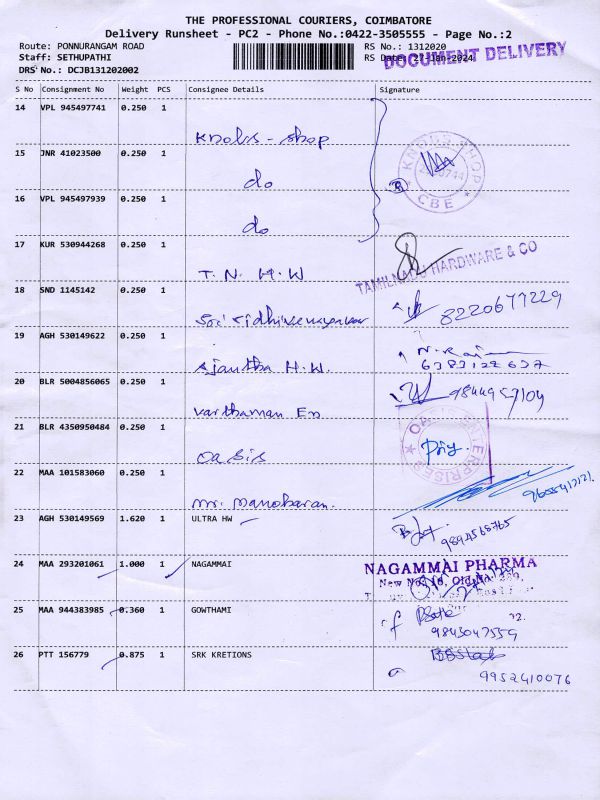 THE PROFESSIONAL COURIERS, COIMBATORE
Delivery Runsheet - PC2 - Phone No.:0422-3505555 - Page No.:2
Route: PONNURANGAM ROAD RS No.: 1312020
Staff: SETHUPATHI RS Date: 27-Jan-2024
DOCUMENT DELIVERY
DRS No.: DCJB131202002
S No Consignment No Weight PCS Consignee Details Signature
14 VPL 945497741 0.250 1 Knobs - shop
15 JNR 41023500 0.250 1 do
KNOBS SHOP
CBE
16 VPL 945497939 0.250 1 do
17 KUR 530944268 0.250 1 T. N. H. W
TAMILNADU HARDWARE & CO
18 SND 1145142 0.250 1 Sri 8220677229
19 AGH 530149622 0.250 1 Ajantha H.W. 6383122637
20 BLR 5004856065 0.250 1 Varthaman En
21 BLR 4350950484 0.250 1 Oasis
OASIS ENTERPRISES
22 MAA 101583060 0.250 1 Mr. Manobaran.
23 AGH 530149569 1.620 1 ULTRA HW 9894568765
24 MAA 293201061 1.000 1 NAGAMMAI
NAGAMMAI PHARMA
New No. 18, Old No.
25 MAA 944383985 0.360 1 GOWTHAMI 9843047559
26 PTT 156779 0.875 1 SRK KRETIONS 9952410076